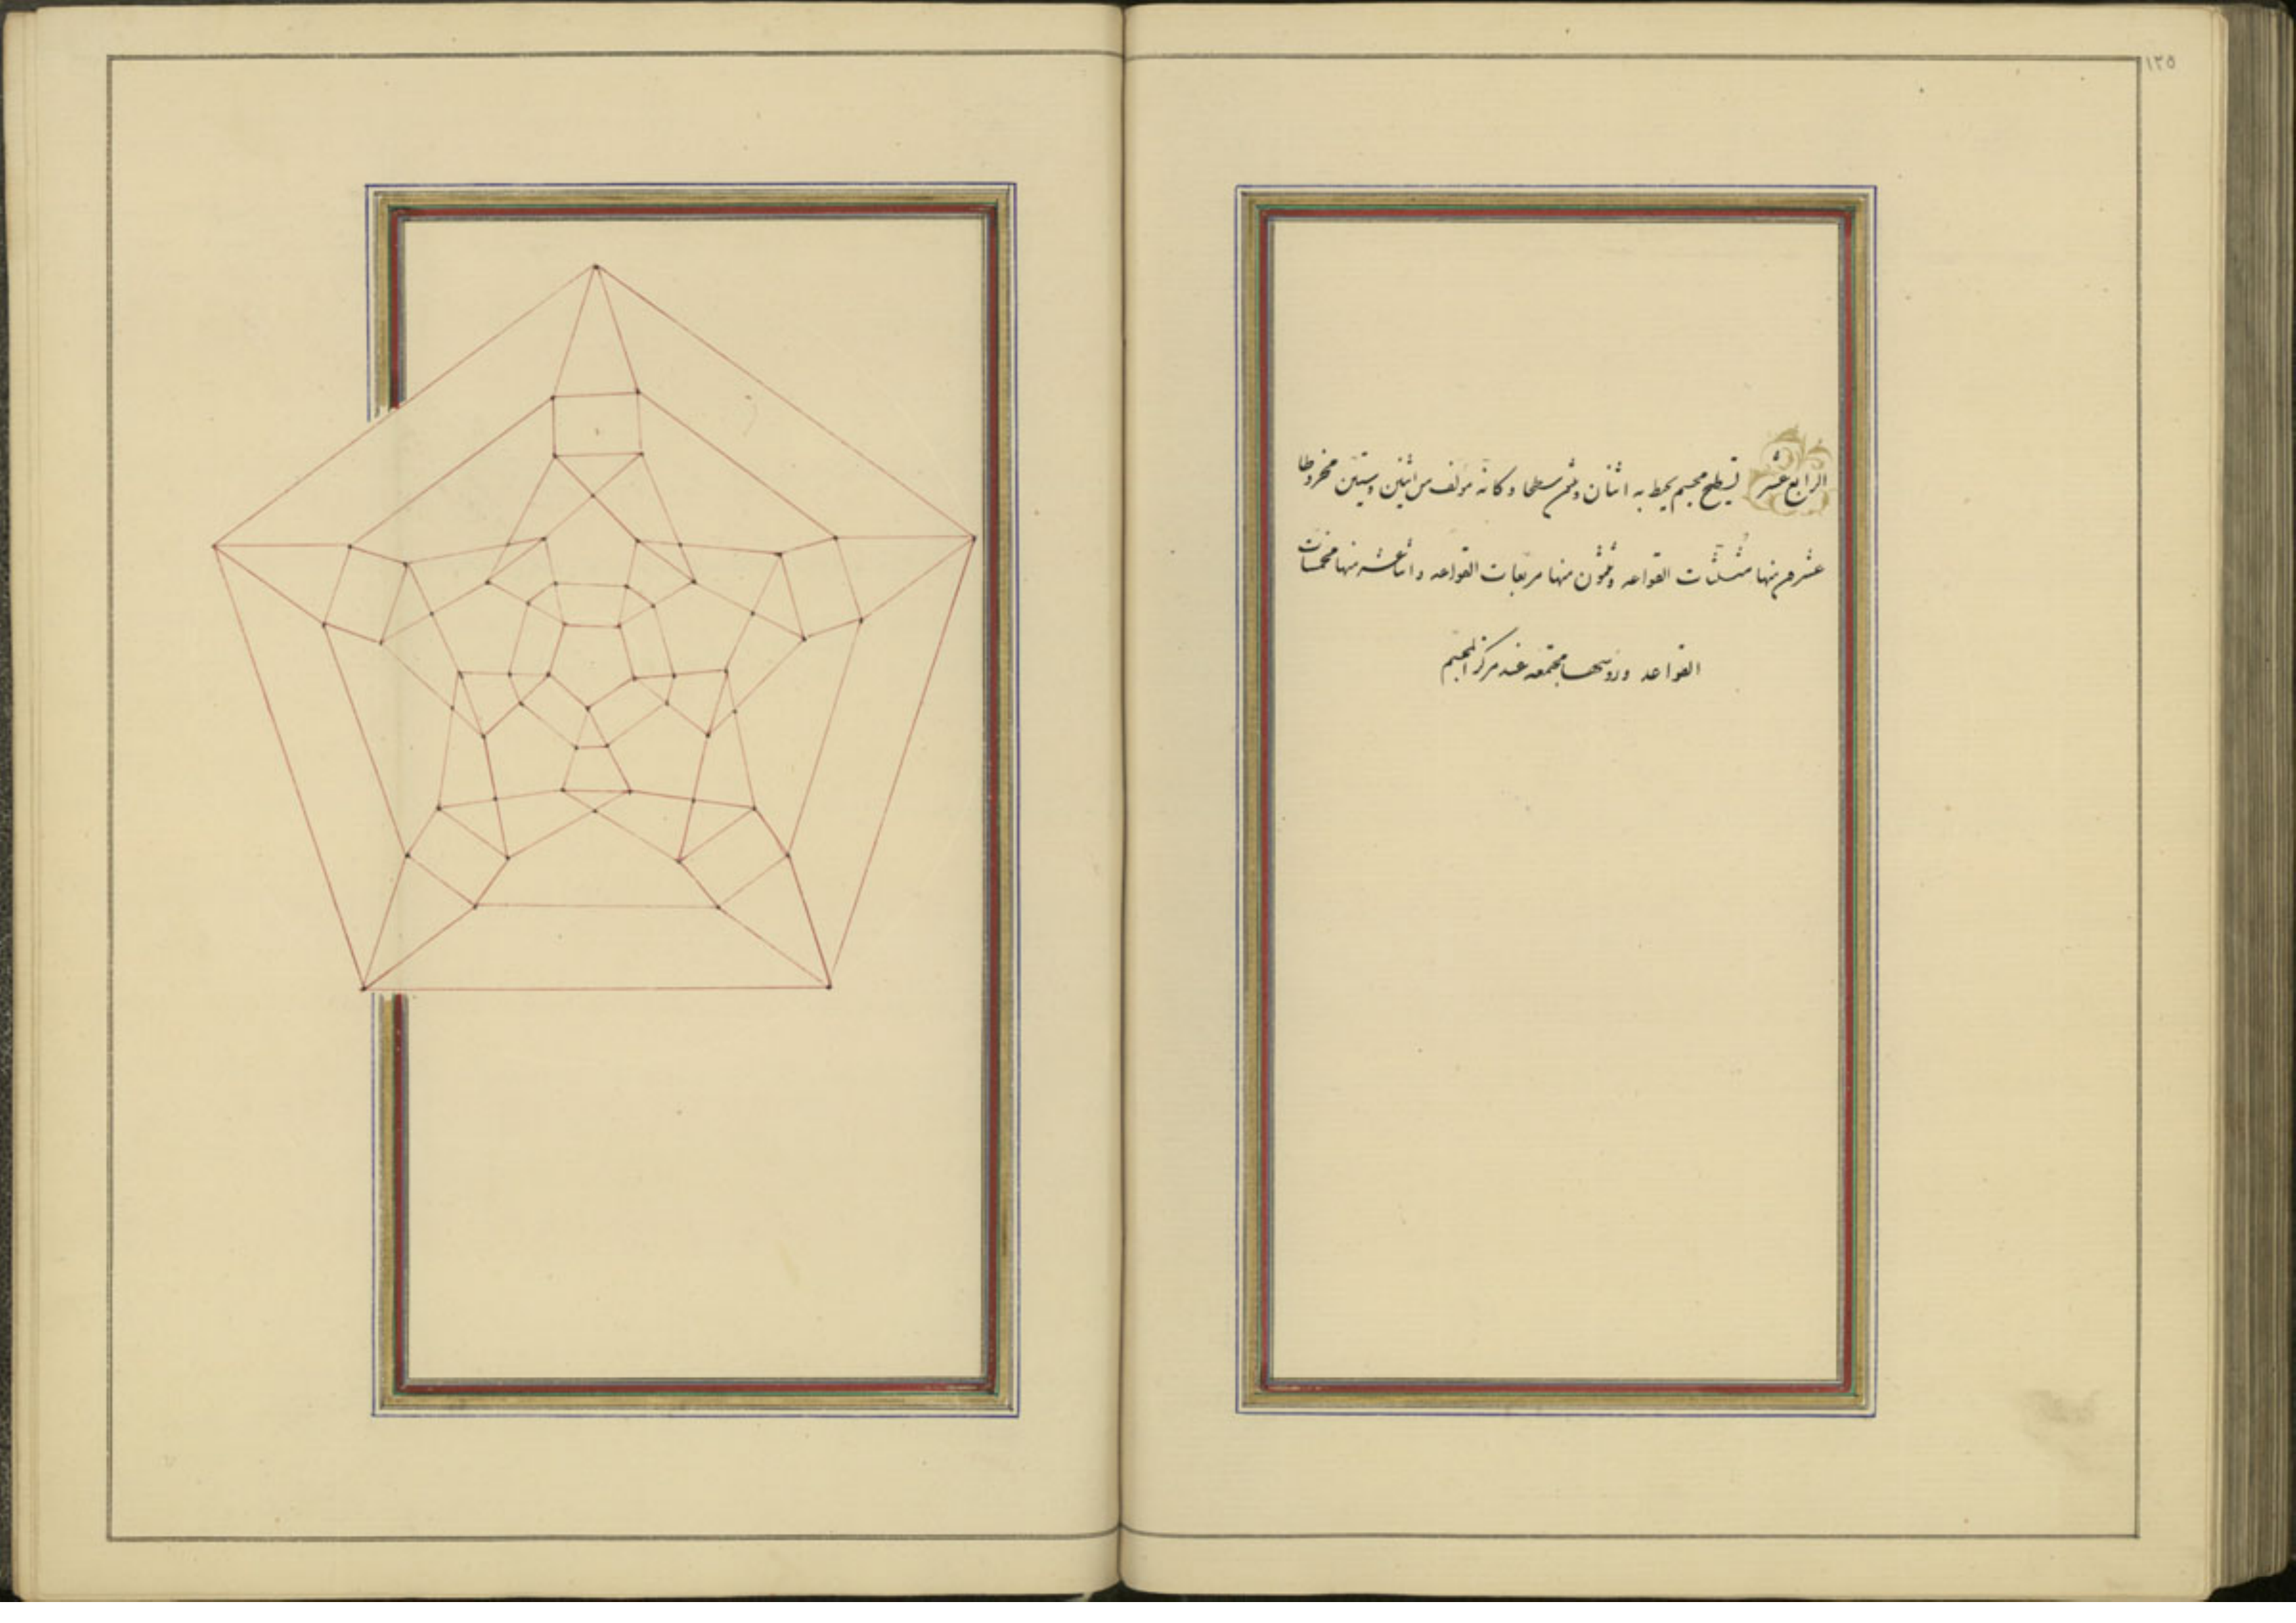 ١٢٥
الرابع عشر تسطيح مجسم يحيط به اثنان وستون سطحا وكانه مؤلف من اثنين وستين مخروطا
عشرون منها مثلثات القواعد وثلثون منها مربعات القواعد واثنا عشر منها مخمسات
القواعد ورؤسها مجتمعة عند مركز المجسم